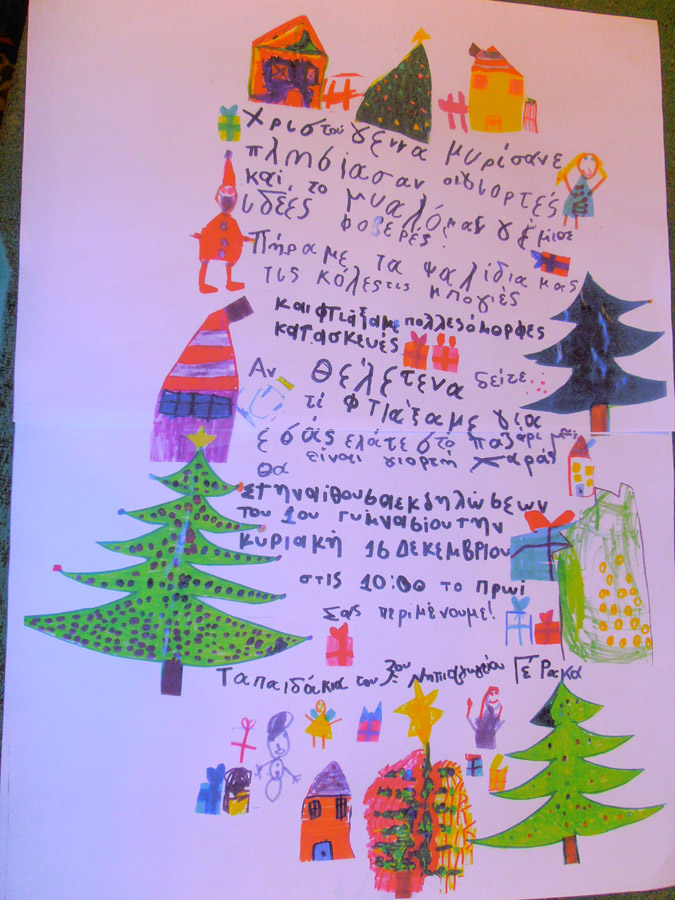 Χριστούγεννα μυρίσανε
πλησίασαν οι γιορτές
και το μυαλό μας γέμισε
ιδέες φοβερές!
Πήραμε τα ψαλίδια μας
τις κόλες τις μπογιές
και φτιάξαμε πολλές όμορφες
κατασκευές
Αν θέλετε να δείτε
τί φτιάξαμε για
εσάς ελάτε στο παζάρι μας
θα είναι γιορτή χαράς
στην αίθουσα εκδηλώσεων
του 1ου Γυμνασίου την
κυριακή 16 Δεκεμβρίου
στις 10:00 το πρωί
Σας περιμένουμε!
Τα παιδάκια του 2ου Νηπιαγωγείου Γέρακα